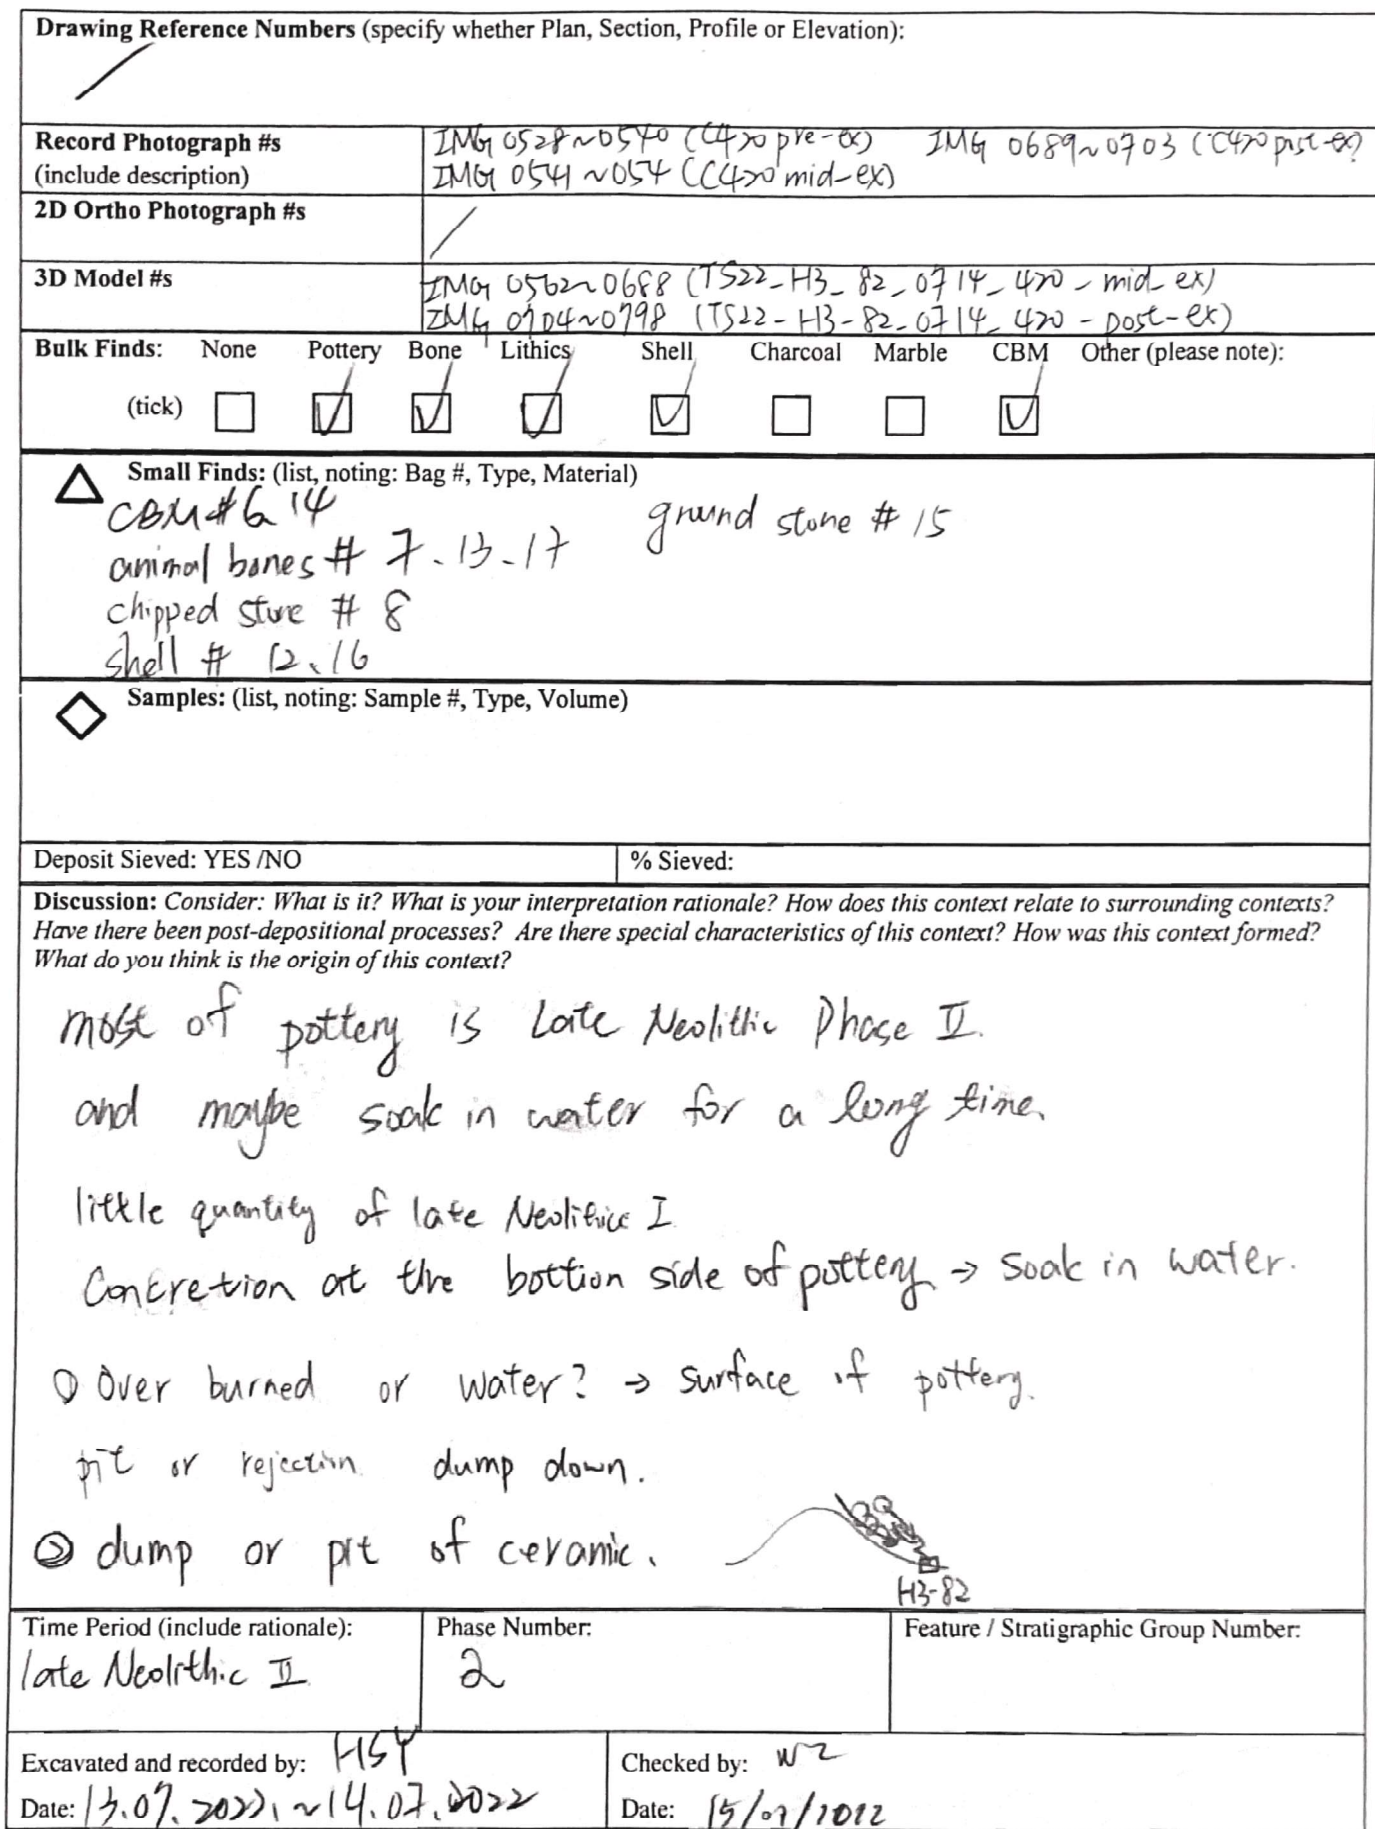 Drawing Reference Numbers (specify whether Plan, Section, Profile or Elevation):
/
Record Photograph #s
(include description)
IMG 0528~0540 (C420 pre-ex) IMG 0689~0703 (C420 post-ex)
IMG 0541~054 (C420 mid-ex)
2D Ortho Photograph #s
/
3D Model #s
IMG 0562~0688 (TS22-H3-82-0714-420-mid-ex)
IMG 0704~0798 (TS22-H3-82-0714-420-post-ex)
Bulk Finds: None Pottery Bone Lithics Shell Charcoal Marble CBM Other (please note):
(tick)
Small Finds: (list, noting: Bag #, Type, Material)
CBM #6 14 ground stone # 15
animal bones # 7.13.17
chipped stone # 8
shell # 12、16
Samples: (list, noting: Sample #, Type, Volume)
Deposit Sieved: YES /NO % Sieved:
Discussion: Consider: What is it? What is your interpretation rationale? How does this context relate to surrounding contexts?
Have there been post-depositional processes? Are there special characteristics of this context? How was this context formed?
What do you think is the origin of this context?
most of pottery is Late Neolithic Phase II.
and maybe soak in water for a long time.
little quantity of late Neolithic I
Concretion at the bottion side of pottery → soak in water.
① Over burned or water? → surface of pottery.
pit or rejection dump down.
② dump or pit of ceramic.
H3-82
Time Period (include rationale):
late Neolithic II
Phase Number:
2
Feature / Stratigraphic Group Number:
Excavated and recorded by: HSY
Date: 13.07.2022.~14.07.2022
Checked by: WZ
Date: 15/07/2022